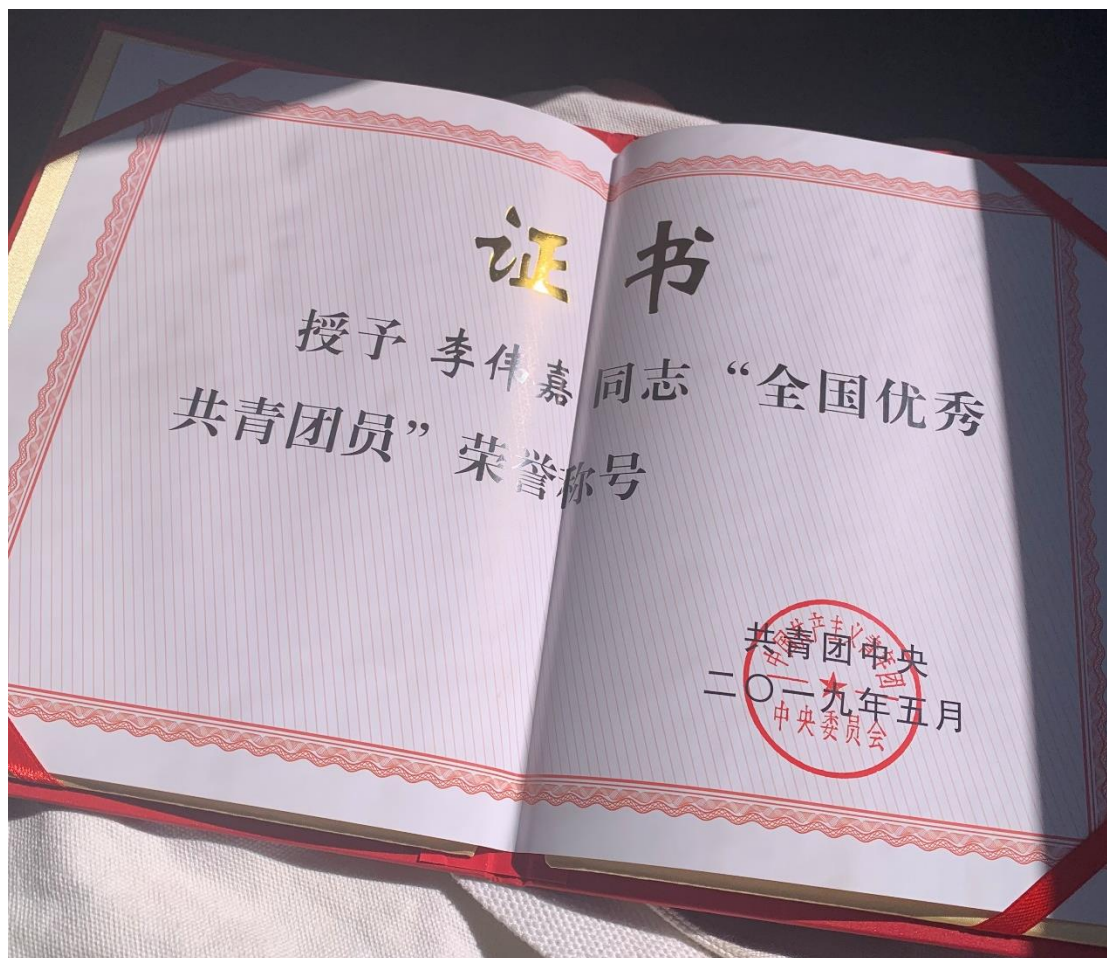 证书
授予 李伟嘉 同志“全国优秀
共青团员”荣誉称号
共青团中央
二〇一九年五月
中国共产主义青年团
中央委员会